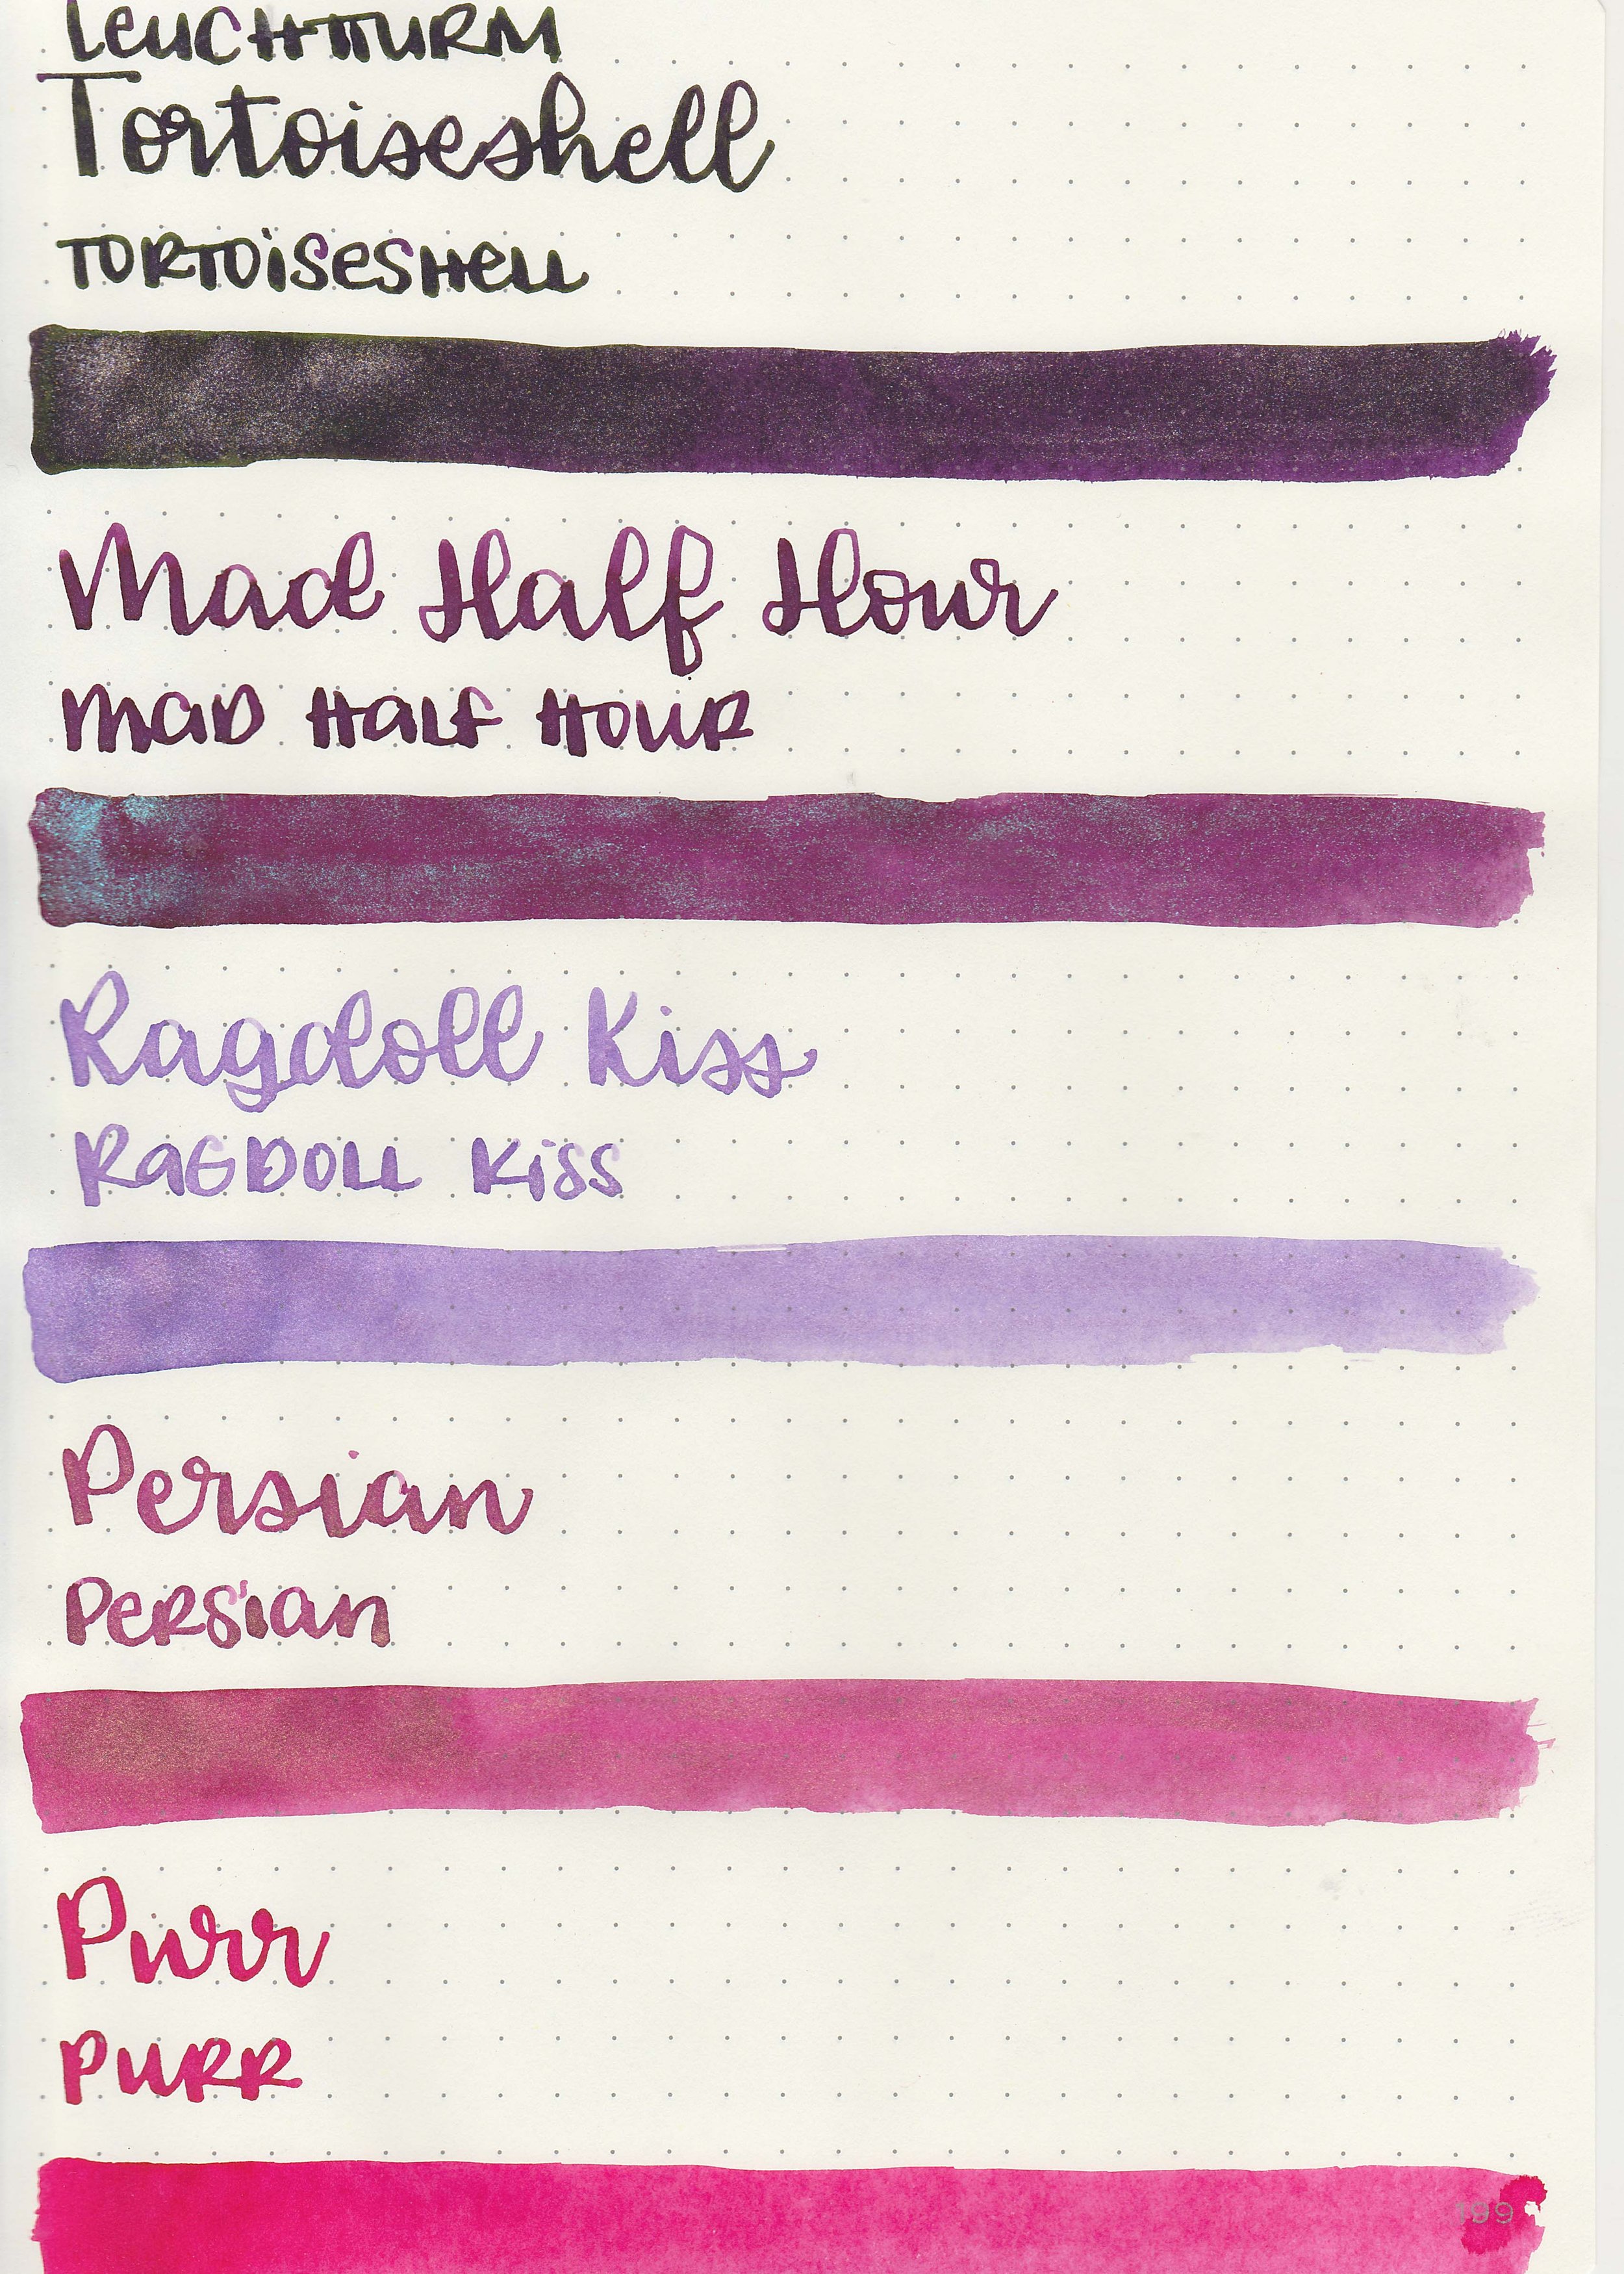 LEUCHTTURM
Tortoiseshell
TORTOiSeSHeLL
Mad Half Hour
MaD HaLF HOUR
Ragdoll Kiss
RaGDOLL KiSS
Persian
PeRSian
Purr
PURR
199